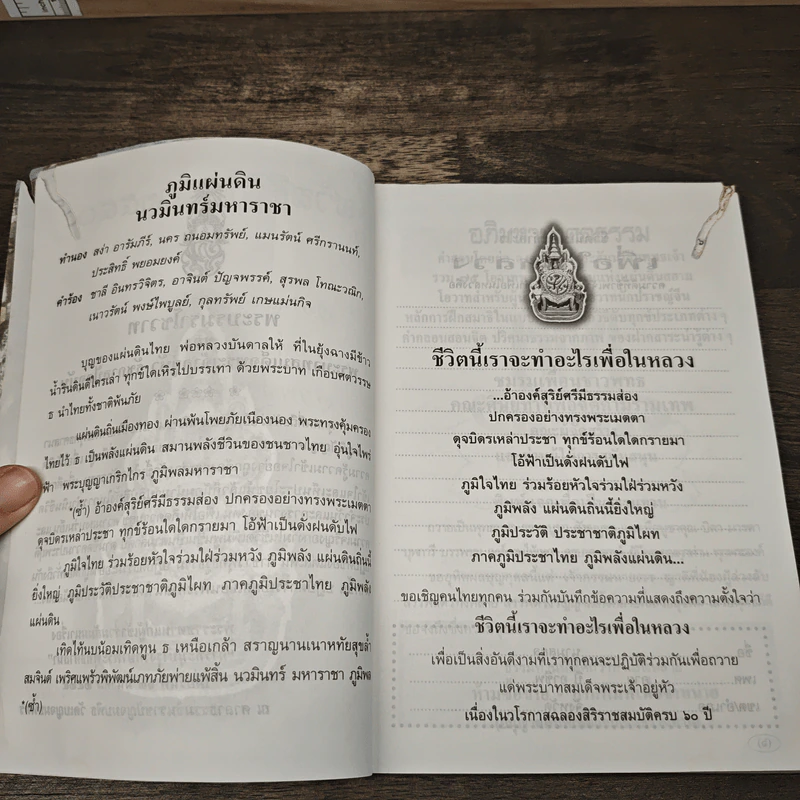 ภูมิแผ่นดิน
นวมินทร์มหาราชา
ทำนอง สง่า อารัมภีร์, นคร ถนอมทรัพย์, แมนรัตน์ ศรีกรานนท์,
ประสิทธิ์ พยอมยงค์
คำร้อง ชาลี อินทรวิจิตร, อาจินต์ ปัญจพรรค์, สุรพล โทณะวณิก,
เนาวรัตน์ พงษ์ไพบูลย์, กุลทรัพย์ เกษแม่นกิจ
บุญของแผ่นดินไทย พ่อหลวงบันดาลให้ ที่ในยุ้งฉางมีข้าว
น้ำรินดินดีใครเล่า ทุกข์ใดเหิรไปบรรเทา ด้วยพระบาท เกือบศตวรรษ
ธ นำไทยทั้งชาติพ้นภัย
แผ่นดินถิ่นเมืองทอง ผ่านพ้นโพยภัยเนืองนอง พระทรงคุ้มครอง
ไทยไว้ ธ เป็นพลังแผ่นดิน สมานพลังชีวินของชนชาวไทย อุ่นใจไพร่
ฟ้า พระบุญญาเกริกไกร ภูมิพลมหาราชา
*(ซ้ำ) อ้าองค์สุริย์ศรีมีธรรมส่อง ปกครองอย่างทรงพระเมตตา
ดุจบิดรเหล่าประชา ทุกข์ร้อนใดใดกรายมา โอ้ฟ้าเป็นดั่งฝนดับไฟ
ภูมิใจไทย ร่วมร้อยหัวใจร่วมใฝ่ร่วมหวัง ภูมิพลัง แผ่นดินถิ่นนี้
ยิ่งใหญ่ ภูมิประวัติประชาชาติภูมิไผท ภาคภูมิประชาไทย ภูมิพลัง
แผ่นดิน
เทิดไท้นบน้อมเทิดทูน ธ เหนือเกล้า สราญนานเนาหทัยสุขล้ำ
สมจินต์ เพริศแพร้วพิพัฒน์เภทภัยพ่ายแพ้สิ้น นวมินทร์ มหาราชา ภูมิพล
*(ซ้ำ)
ชีวิตนี้เราจะทำอะไรเพื่อในหลวง
...อ้าองค์สุริย์ศรีมีธรรมส่อง
ปกครองอย่างทรงพระเมตตา
ดุจบิดรเหล่าประชา ทุกข์ร้อนใดใดกรายมา
โอ้ฟ้าเป็นดั่งฝนดับไฟ
ภูมิใจไทย ร่วมร้อยหัวใจร่วมใฝ่ร่วมหวัง
ภูมิพลัง แผ่นดินถิ่นนี้ยิ่งใหญ่
ภูมิประวัติ ประชาชาติภูมิไผท
ภาคภูมิประชาไทย ภูมิพลังแผ่นดิน...
ขอเชิญคนไทยทุกคน ร่วมกันบันทึกข้อความที่แสดงถึงความตั้งใจว่า
ชีวิตนี้เราจะทำอะไรเพื่อในหลวง
เพื่อเป็นสิ่งอันดีงามที่เราทุกคนจะปฏิบัติร่วมกันเพื่อถวาย
แด่พระบาทสมเด็จพระเจ้าอยู่หัว
เนื่องในวโรกาสฉลองสิริราชสมบัติครบ ๖๐ ปี